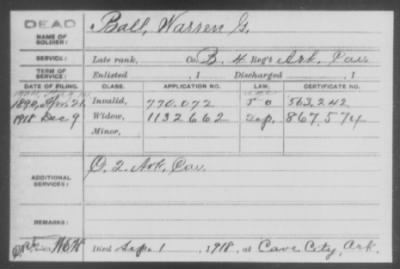 DEAD
NAME OF SOLDIER: Ball, Warren G.
SERVICE: Late rank, Co. B, 4 Reg't Ark. Cav
TERM OF SERVICE: Enlisted , 1 Discharged , 1
DATE OF FILING. CLASS. APPLICATION NO. LAW. CERTIFICATE NO.
1890, Invalid, 770.072 563.242
1918 Dec 9 Widow, 1132662 Sep. 867.574
Minor,
ADDITIONAL SERVICES: O. 2 Ark. Cav.
REMARKS:
Died Sep. 1, 1918, at Cave City, Ark.